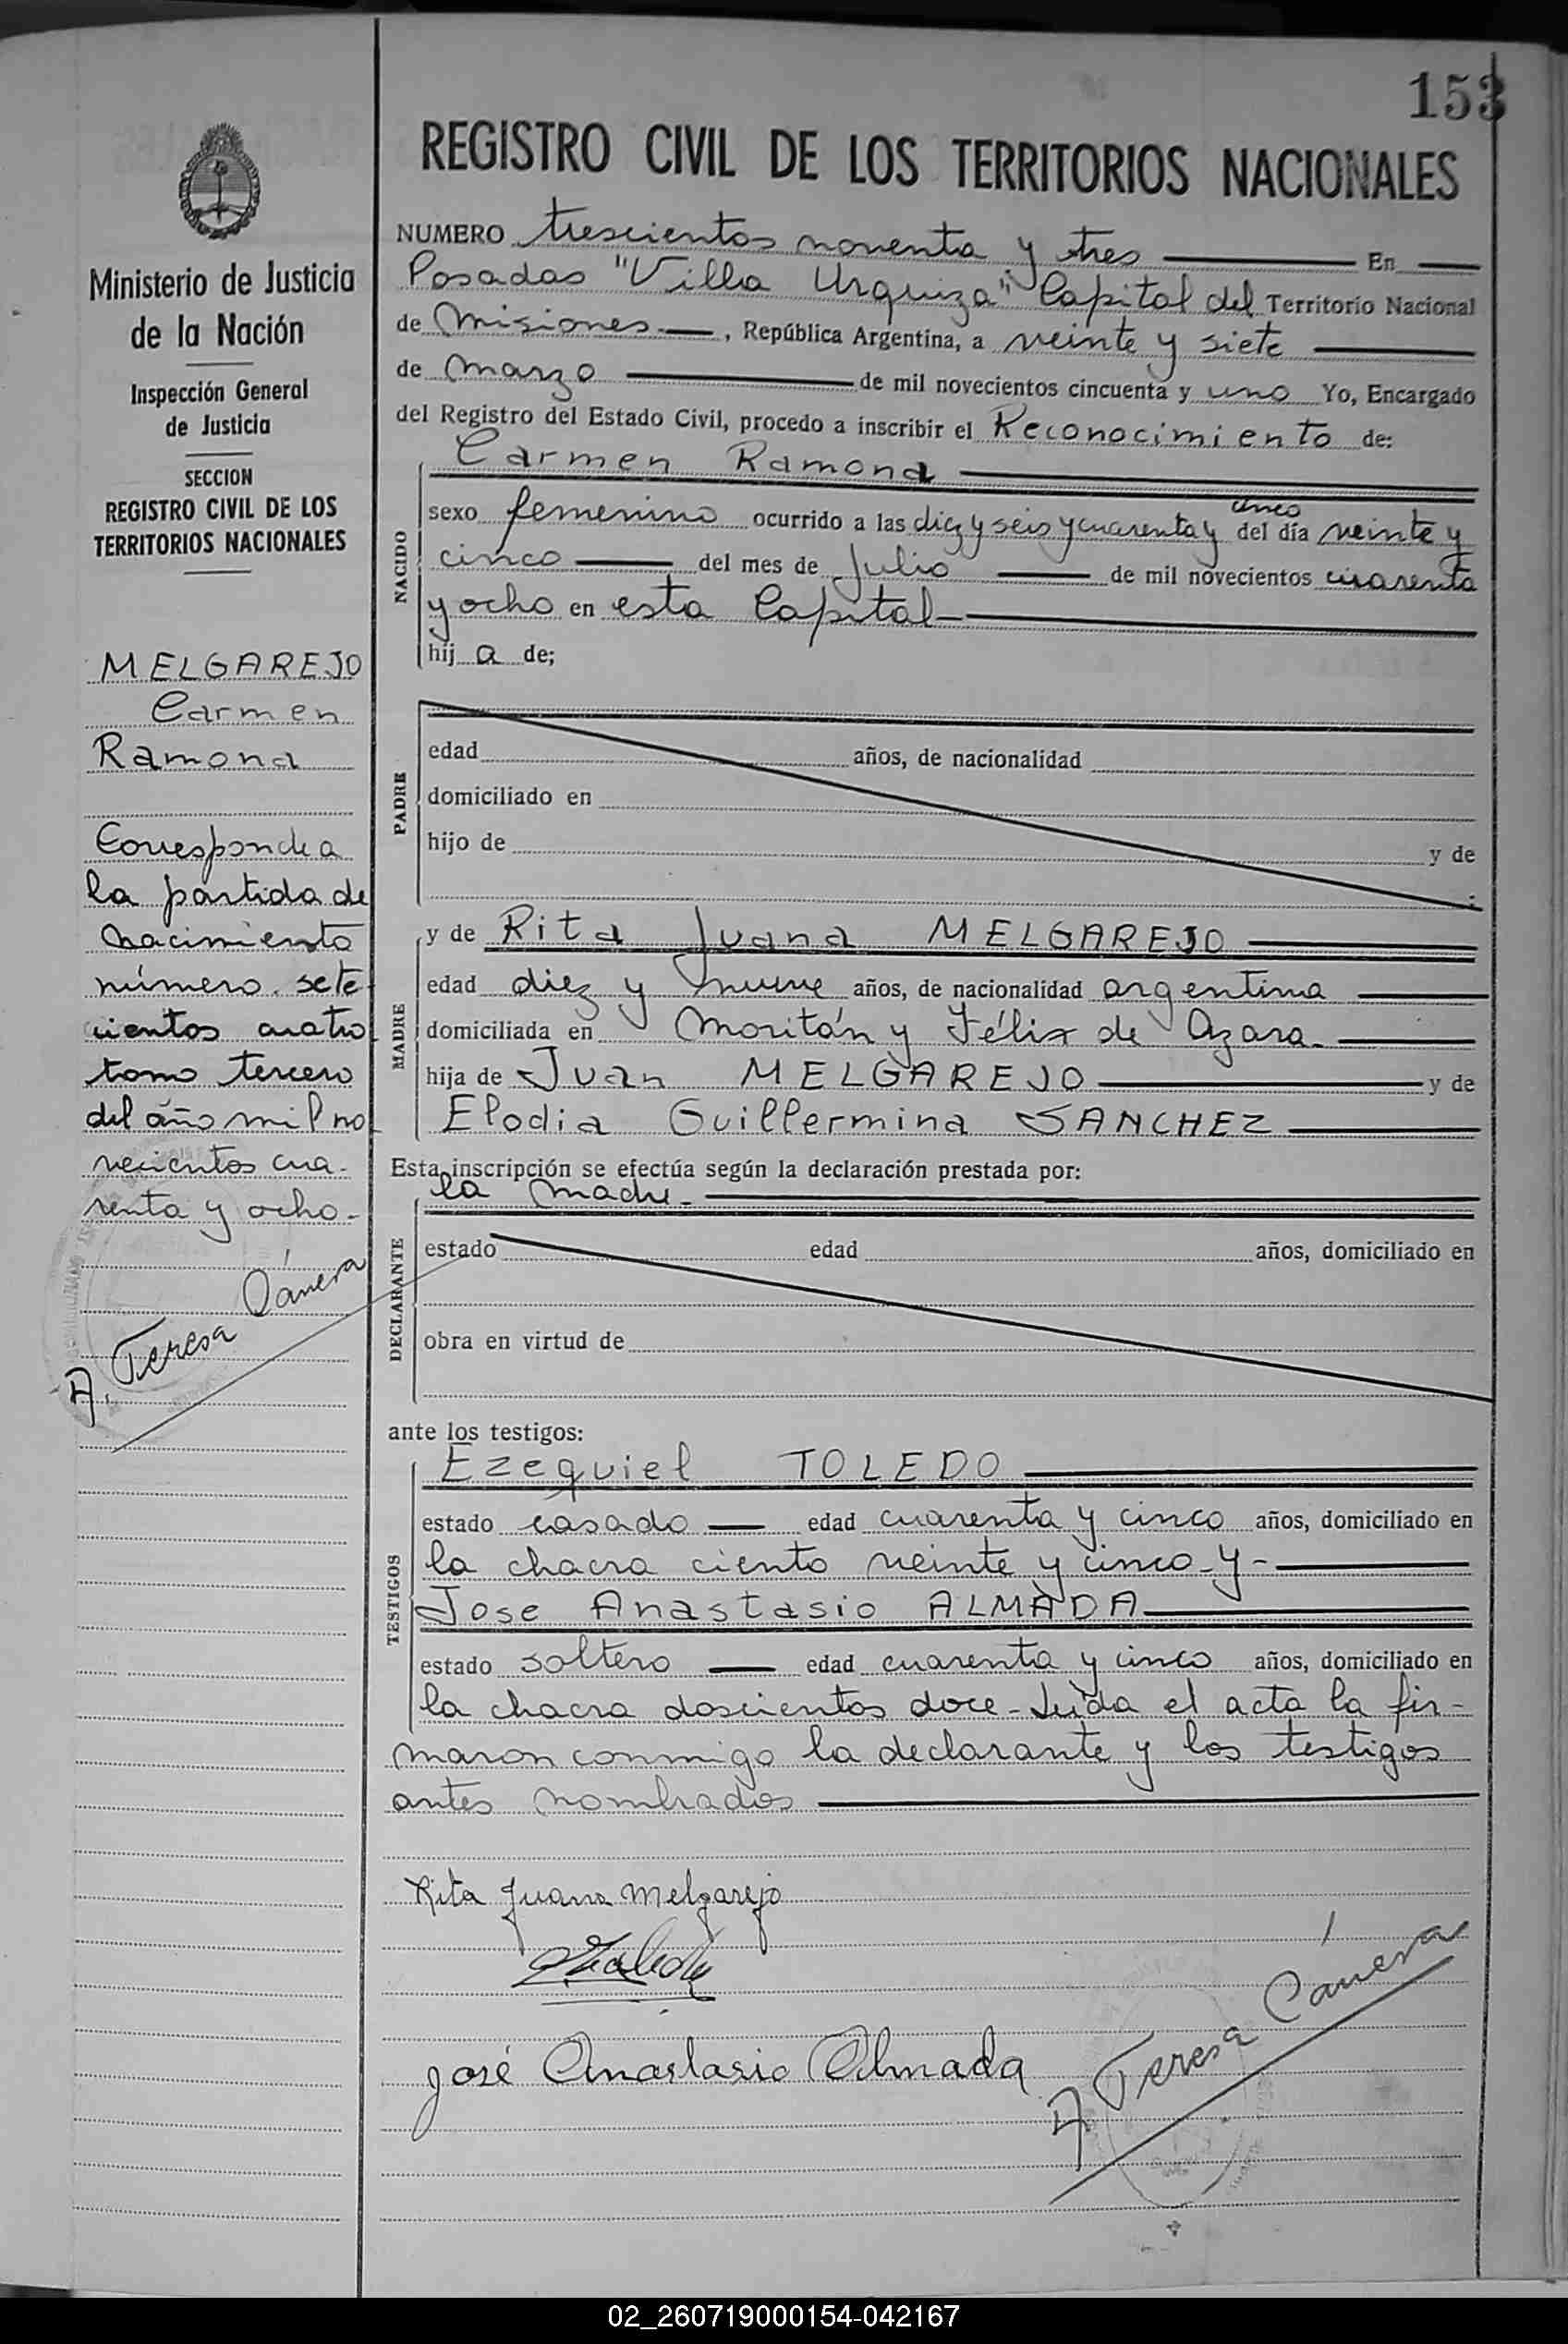 153
REGISTRO CIVIL DE LOS TERRITORIOS NACIONALES
Ministerio de Justicia
de la Nación
Inspección General
de Justicia
SECCION
REGISTRO CIVIL DE LOS
TERRITORIOS NACIONALES
MELGAREJO
Carmen
Ramona
Corresponde a
la partida de
nacimiento
número sete
cientos cuatro
tomo tercero
del año mil no
vecientos cua-
renta y ocho-
A. Teresa
NUMERO trescientos noventa y tres En
Posadas "Villa Urquiza" Capital del Territorio Nacional
de Misiones, República Argentina, a veinte y siete
de marzo de mil novecientos cincuenta y uno Yo, Encargado
del Registro del Estado Civil, procedo a inscribir el Reconocimiento de:
Carmen Ramona
NACIDO
sexo femenino ocurrido a las diez y seis y cuarenta y cinco del día veinte y
cinco del mes de Julio de mil novecientos cuarenta
y ocho en esta Capital-
hij a de;
PADRE
edad años, de nacionalidad
domiciliado en
hijo de y de
MADRE
y de Rita Juana MELGAREJO
edad diez y nueve años, de nacionalidad argentina
domiciliada en Moritán y Félix de Azara-
hija de Juan MELGAREJO y de
Elodia Guillermina SANCHEZ
Esta inscripción se efectúa según la declaración prestada por:
la madre-
DECLARANTE
estado edad años, domiciliado en
obra en virtud de
ante los testigos:
TESTIGOS
Ezequiel TOLEDO
estado casado edad cuarenta y cinco años, domiciliado en
la chacra ciento veinte y cinco-y-
Jose Anastasio ALMADA
estado soltero edad cuarenta y cinco años, domiciliado en
la chacra doscientos doce-Leida el acta la fir-
maron conmigo la declarante y los testigos
antes nombrados
Rita Juana Melgarejo
José Anastasio Almada
A Teresa
02_260719000154-042167